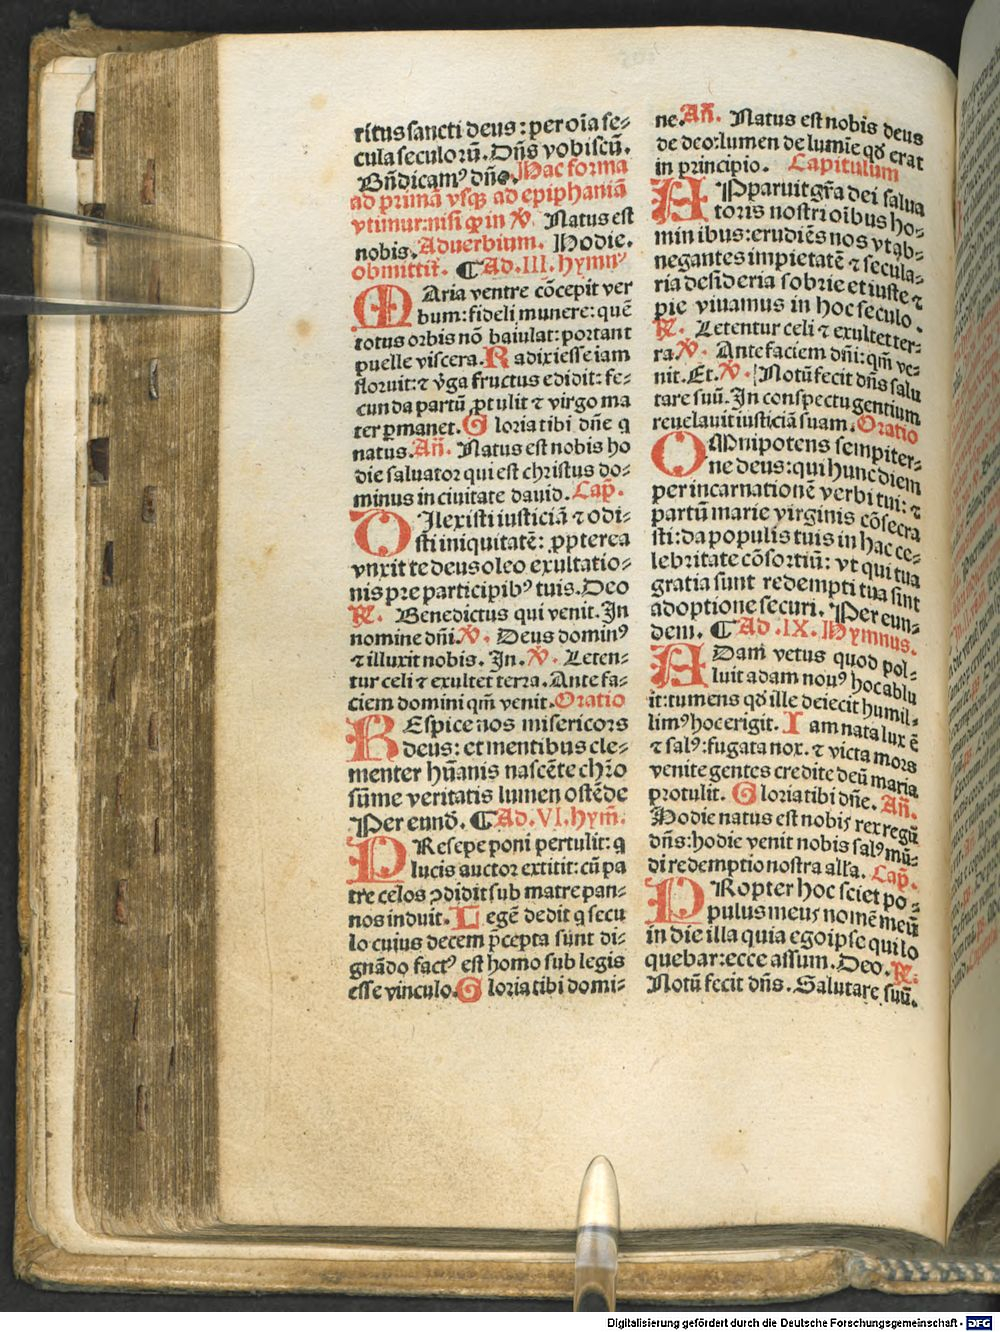 ritus sancti deus: per oı̄a se⸗
cula seculorū. Dn̄s vobiscū.
Bn̄dicamꝰ dn̄o. Hac forma
ad primā vsqꝫ ad epiphaniā
vtimur: nisi ꝙ in ℣ Natus est
nobis. Aduerbium. Hodie.
obmittit᷑. ¶ Ad .III. hymnꝰ
MAria ventre cōcepit ver
bum: fideli munere: quē
totus orbis nō baiulat: portant
puelle viscera. Radix iesse iam
floruit: ⁊ v̄ga fructus edidit: fe⸗
cunda partū ꝓtulit ⁊ virgo ma
ter ꝑmanet. Gloria tibi dn̄e q
natus. An̄. Natus est nobis ho
die saluator qui est christus do⸗
minus in ciuitate dauid. Cap̄.
DIlexisti iusticiā ⁊ odi⸗
sti iniquitatē: ꝓpterea
vnxit te deus oleo exultatio⸗
nis pre participibꝰ tuis. Deo
℟. Benedictus qui venit. In
nomine dn̄i. ℣. Deus dominꝰ
⁊ illuxit nobis. In. ℣. Leten⸗
tur celi ⁊ exultet terra. Ante fa⸗
ciem domini qm̄ venit. Oratio
REspice nos misericors
deus: et mentibus cle⸗
menter hūanis nascēte chr̄o
sūme veritatis lumen ostēde
Per eund̄. ¶ Ad .VI. hym̄.
PResepe poni pertulit: q
lucis auctor extitit: cū pa
tre celos ꝯdidit sub matre pan⸗
nos induit. Legē dedit q secu
lo cuius decem p̄cepta sunt di⸗
gnādo factꝰ est homo sub legis
esse vinculo. Gloria tibi domi⸗
ne. An̄. Natus est nobis deus
de deo: lumen de lumīe qd̄ erat
in principio. Capitulum
APparuit gr̄a dei salua
toris nostri oı̄bus ho⸗
minibus: erudiēs nos vt ab⸗
negantes impietatē ⁊ secula⸗
ria desideria sobrie et iuste ⁊
pie viuamus in hoc seculo.
℟. Letentur celi ⁊ exultet ter⸗
ra. ℣. Ante faciem dn̄i: qm̄ ve⸗
nit. Et. ℣. Notū fecit dn̄s salu
tare suū. In conspectu gentium
reuelauit iusticiā suam. Oratio
OMnipotens sempiter⸗
ne deus: qui hunc diem
per incarnationē verbi tui: ⁊
partū marie virginis cōsecra
sti: da populis tuis in hac ce⸗
lebritate cōsortiū: vt qui tua
gratia sunt redempti tua sint
adoptione securi. Per eun⸗
dem. ¶ Ad .IX. Hymnus.
ADam vetus quod pol⸗
luit adam nouꝰ hoc ablu
it: tumens qd̄ ille deiecit humil⸗
limꝰ hoc erigit. Iam nata lux ē
⁊ salꝰ: fugata nox. ⁊ victa mors
venite gentes credite deū maria
protulit. Gloria tibi dn̄e. An̄.
Hodie natus est nobis rex regū
dn̄s: hodie venit nobis salꝰ mū⸗
di redemptio nostra all̄a. Cap̄.
PRopter hoc sciet po⸗
pulus meus nomē meū
in die illa quia ego ipse qui lo
quebar: ecce assum. Deo. ℟.
Notū fecit dn̄s. Salutare suū.
Digitalisierung gefördert durch die Deutsche Forschungsgemeinschaft - DFG